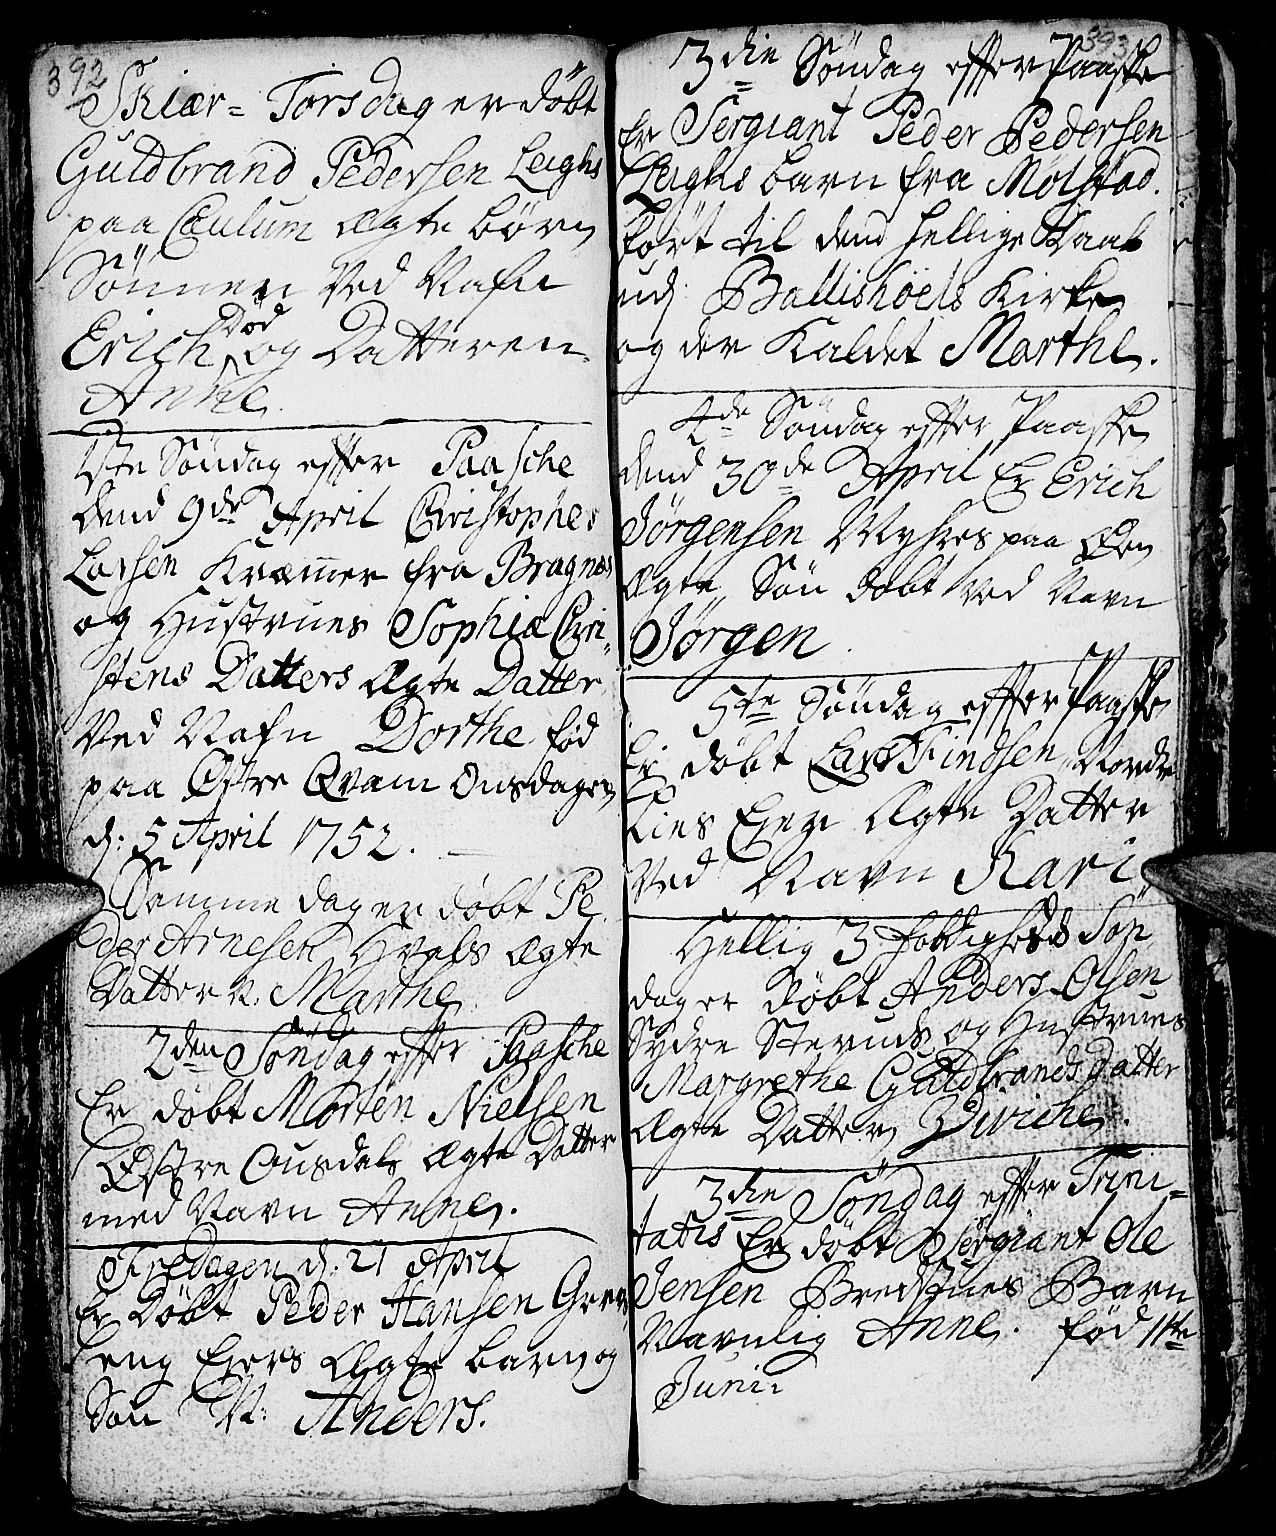 392
Skiær- Torsdag er døbt
Guldbrand Pedersen Leighs
paa Cæulum Ægte børn
Sønnen Ved Nafn
Erich Død og Datteren
Anne.
1ste Søndag effter Paasche
dend 9de April Christopher
Larsen Kræmmer fra Bragnæs
og Hustrues Sophia Chri-
stens Datters Ægte Datter
Ved Nafn Dorthe fød
paa Østre Qvam Onsdagen
d: 5 April 1752.
Samme dag er døbt Pe-
der Arnesen Hvels Ægte
Datter N: Marthe
2den Søndag effter Paasche
Er døbt Morten Nielsen
Østre Ousdals Ægte Datter
med Navn Anne.
Fredagen d: 21 April
Er Døbt Peder Hansen Grøn
eng Ejers Ægte barn og
Søn N: Anders.
393
3die Søndag effter Paaske
Er Sergiant Peder Pedersen
Leighs barn fra Mølstad
ført til dend hellige Daab
udj Ballishøels Kirke
og der Kaldet Marthe.
4de Søndag effter Paaske
dend 30de April Er Erich
Jørgensen Myhres paa Øen
Ægte Søn døbt ved Navn
Jørgen.
5te Søndag effter Paaske
Er døbt Lars Findsen Nordre
Lies Ejere Ægte Datter
Ved Navn Kari
Hellig 3 foldigheds Søn
dag er døbt Anders Olsen
Sydre Steruds og Hustrues
Margrethe Guldbrands datter
Ægte Datter Siviche.
3die Søndag effter Trini-
tatis Er døbt Sergiant Ole
Jensen Bredstues Barn
Navnlig Anne. fød 11te
Junii